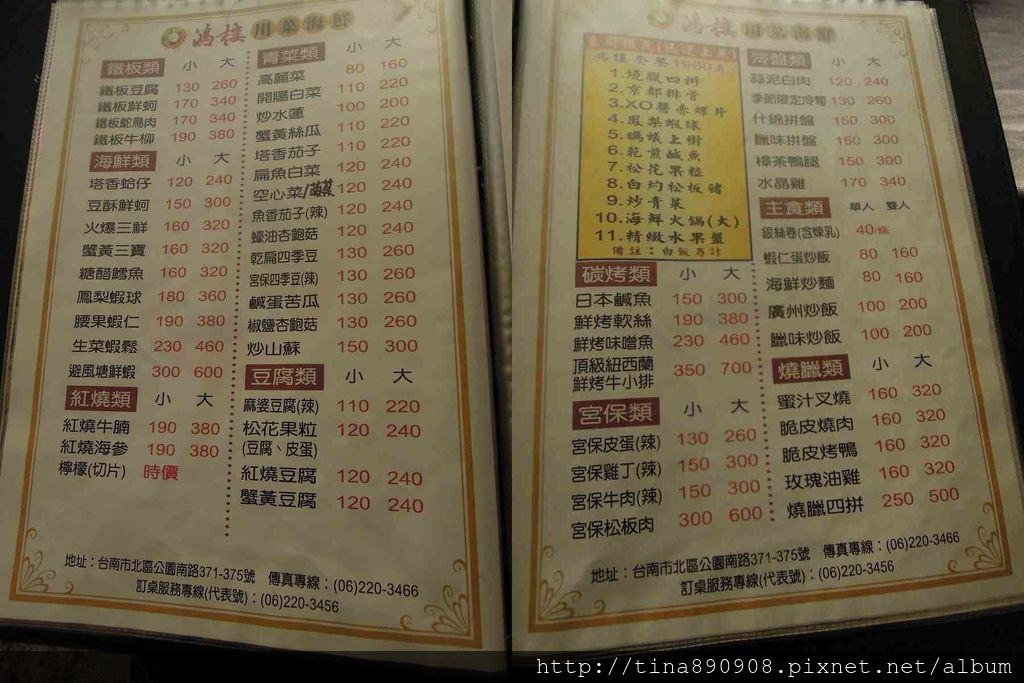 鴻樓 川菜海鮮
鐵板類 小 大
鐵板豆腐 130 260
鐵板鮮蚵 170 340
鐵板鴕鳥肉 170 340
鐵板牛柳 190 380
海鮮類 小 大
塔香蛤仔 120 240
豆酥鮮蚵 150 300
火爆三鮮 160 320
蟹黃三寶 160 320
糖醋鱈魚 160 320
鳳梨蝦球 180 360
腰果蝦仁 190 380
生菜蝦鬆 230 460
避風塘鮮蝦 300 600
紅燒類 小 大
紅燒牛腩 190 380
紅燒海參 190 380
檸檬(切片) 時價
青菜類 小 大
高麗菜 80 160
開陽白菜 110 220
炒水蓮 100 200
蟹黃絲瓜 110 220
塔香茄子 110 220
扁魚白菜 120 240
空心菜/ 120 240
魚香茄子(辣) 120 240
蠔油杏鮑菇 120 240
乾扁四季豆 130 260
宮保四季豆(辣) 130 260
鹹蛋苦瓜 130 260
椒鹽杏鮑菇 130 260
炒山蘇 150 300
豆腐類 小 大
麻婆豆腐(辣) 110 220
松花果粒 120 240
(豆腐、皮蛋)
紅燒豆腐 120 240
蟹黃豆腐 120 240
地址：台南市北區公園南路371-375號 傳真專線：(06)220-3466
訂桌服務專線(代表號)：(06)220-3456
鴻樓 川菜海鮮
鴻樓套餐1980元
1.燒臘四拼
2.京都排骨
3.XO醬赤螺片
4.鳳梨蝦球
5.螞蟻上樹
6.乾煎鹹魚
7.松花果粒
8.白灼松板豬
9.炒青菜
10.海鮮火鍋(大)
11.精緻水果盤
備註：白飯另計
碳烤類 小 大
日本鹹魚 150 300
鮮烤軟絲 190 380
鮮烤味噌魚 230 460
頂級紐西蘭
鮮烤牛小排 350 700
宮保類 小 大
宮保皮蛋(辣) 130 260
宮保雞丁(辣) 150 300
宮保牛肉(辣) 150 300
宮保松板肉 300 600
冷盤類 小 大
蒜泥白肉 120 240
季節限定冷筍 130 260
什錦拼盤 150 300
臘味拼盤 150 300
樟茶鴨腿 150 300
水晶雞 170 340
主食類 單人 雙人
銀絲卷(含煉乳) 40/條
蝦仁蛋炒飯 80 160
海鮮炒麵 80 160
廣州炒飯 100 200
臘味炒飯 100 200
燒臘類 小 大
蜜汁叉燒 160 320
脆皮燒肉 160 320
脆皮烤鴨 160 320
玫瑰油雞 160 320
燒臘四拼 250 500
地址：台南市北區公園南路371-375號 傳真專線：(06)220-3466
訂桌服務專線(代表號)：(06)220-3456
http://tina890908.pixnet.net/album